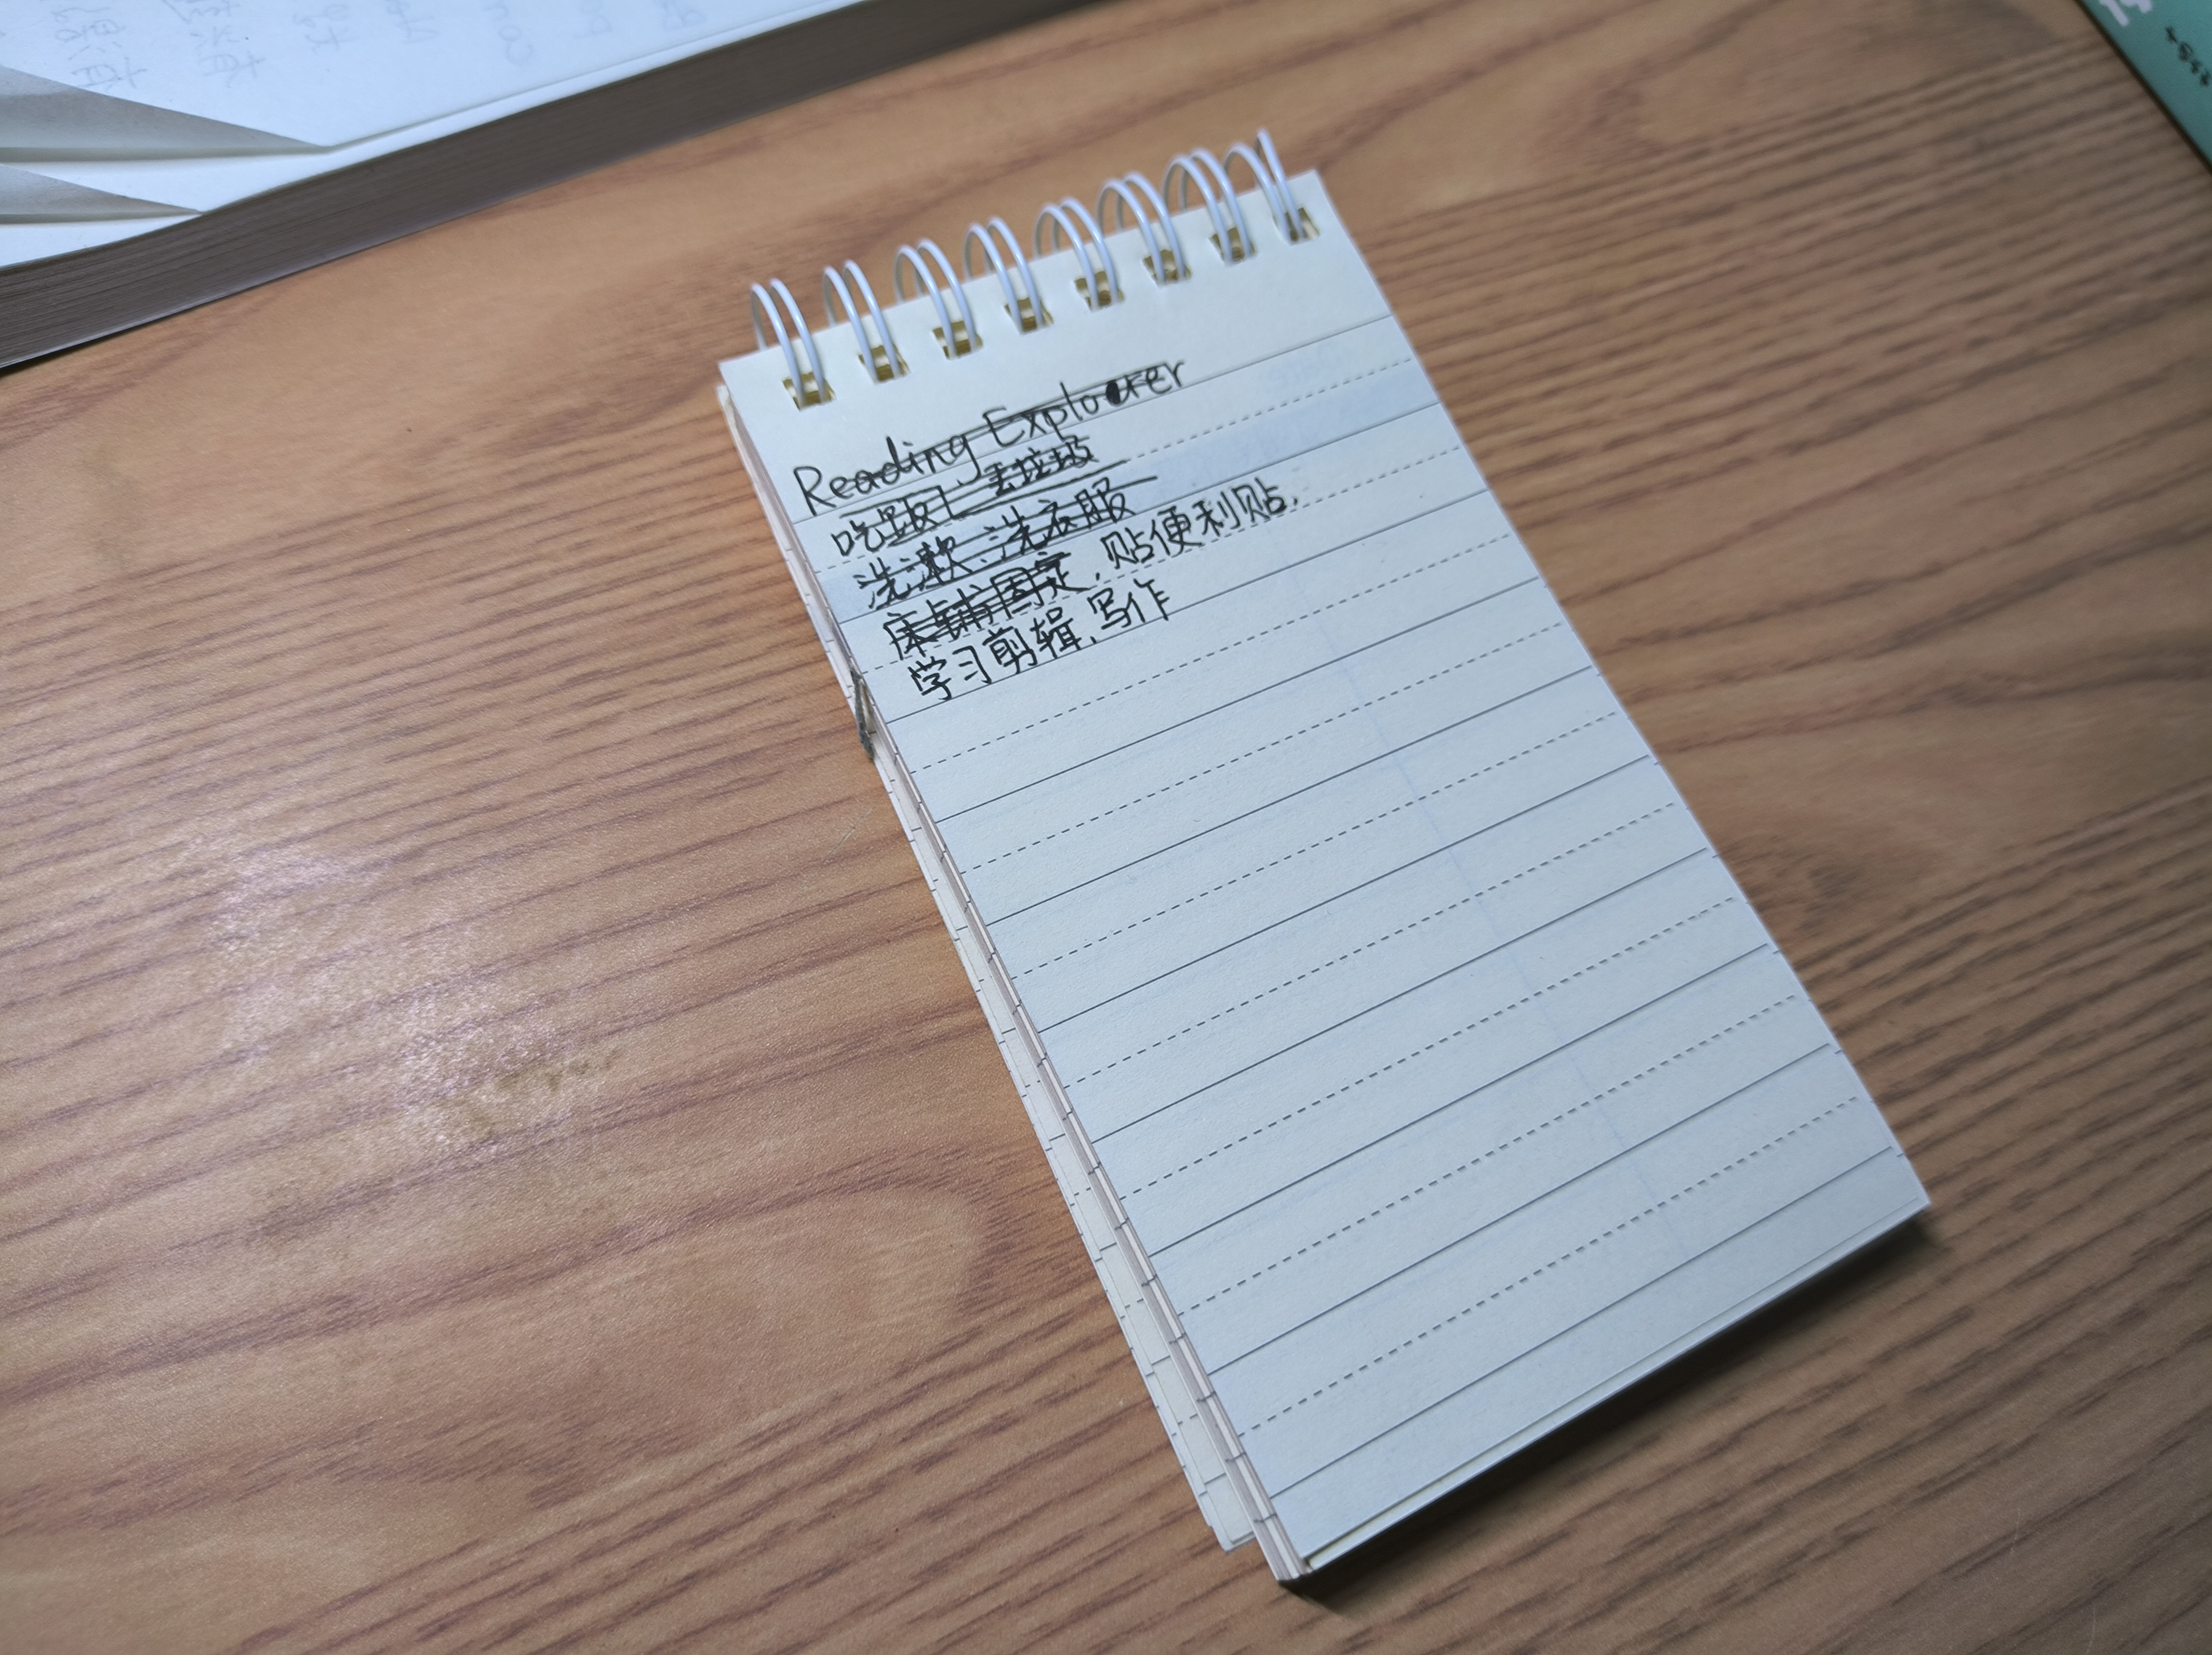 Reading Explorer
吃饭、丢垃圾
洗漱、洗衣服
床铺固定，贴便利贴，
学习剪辑，写作